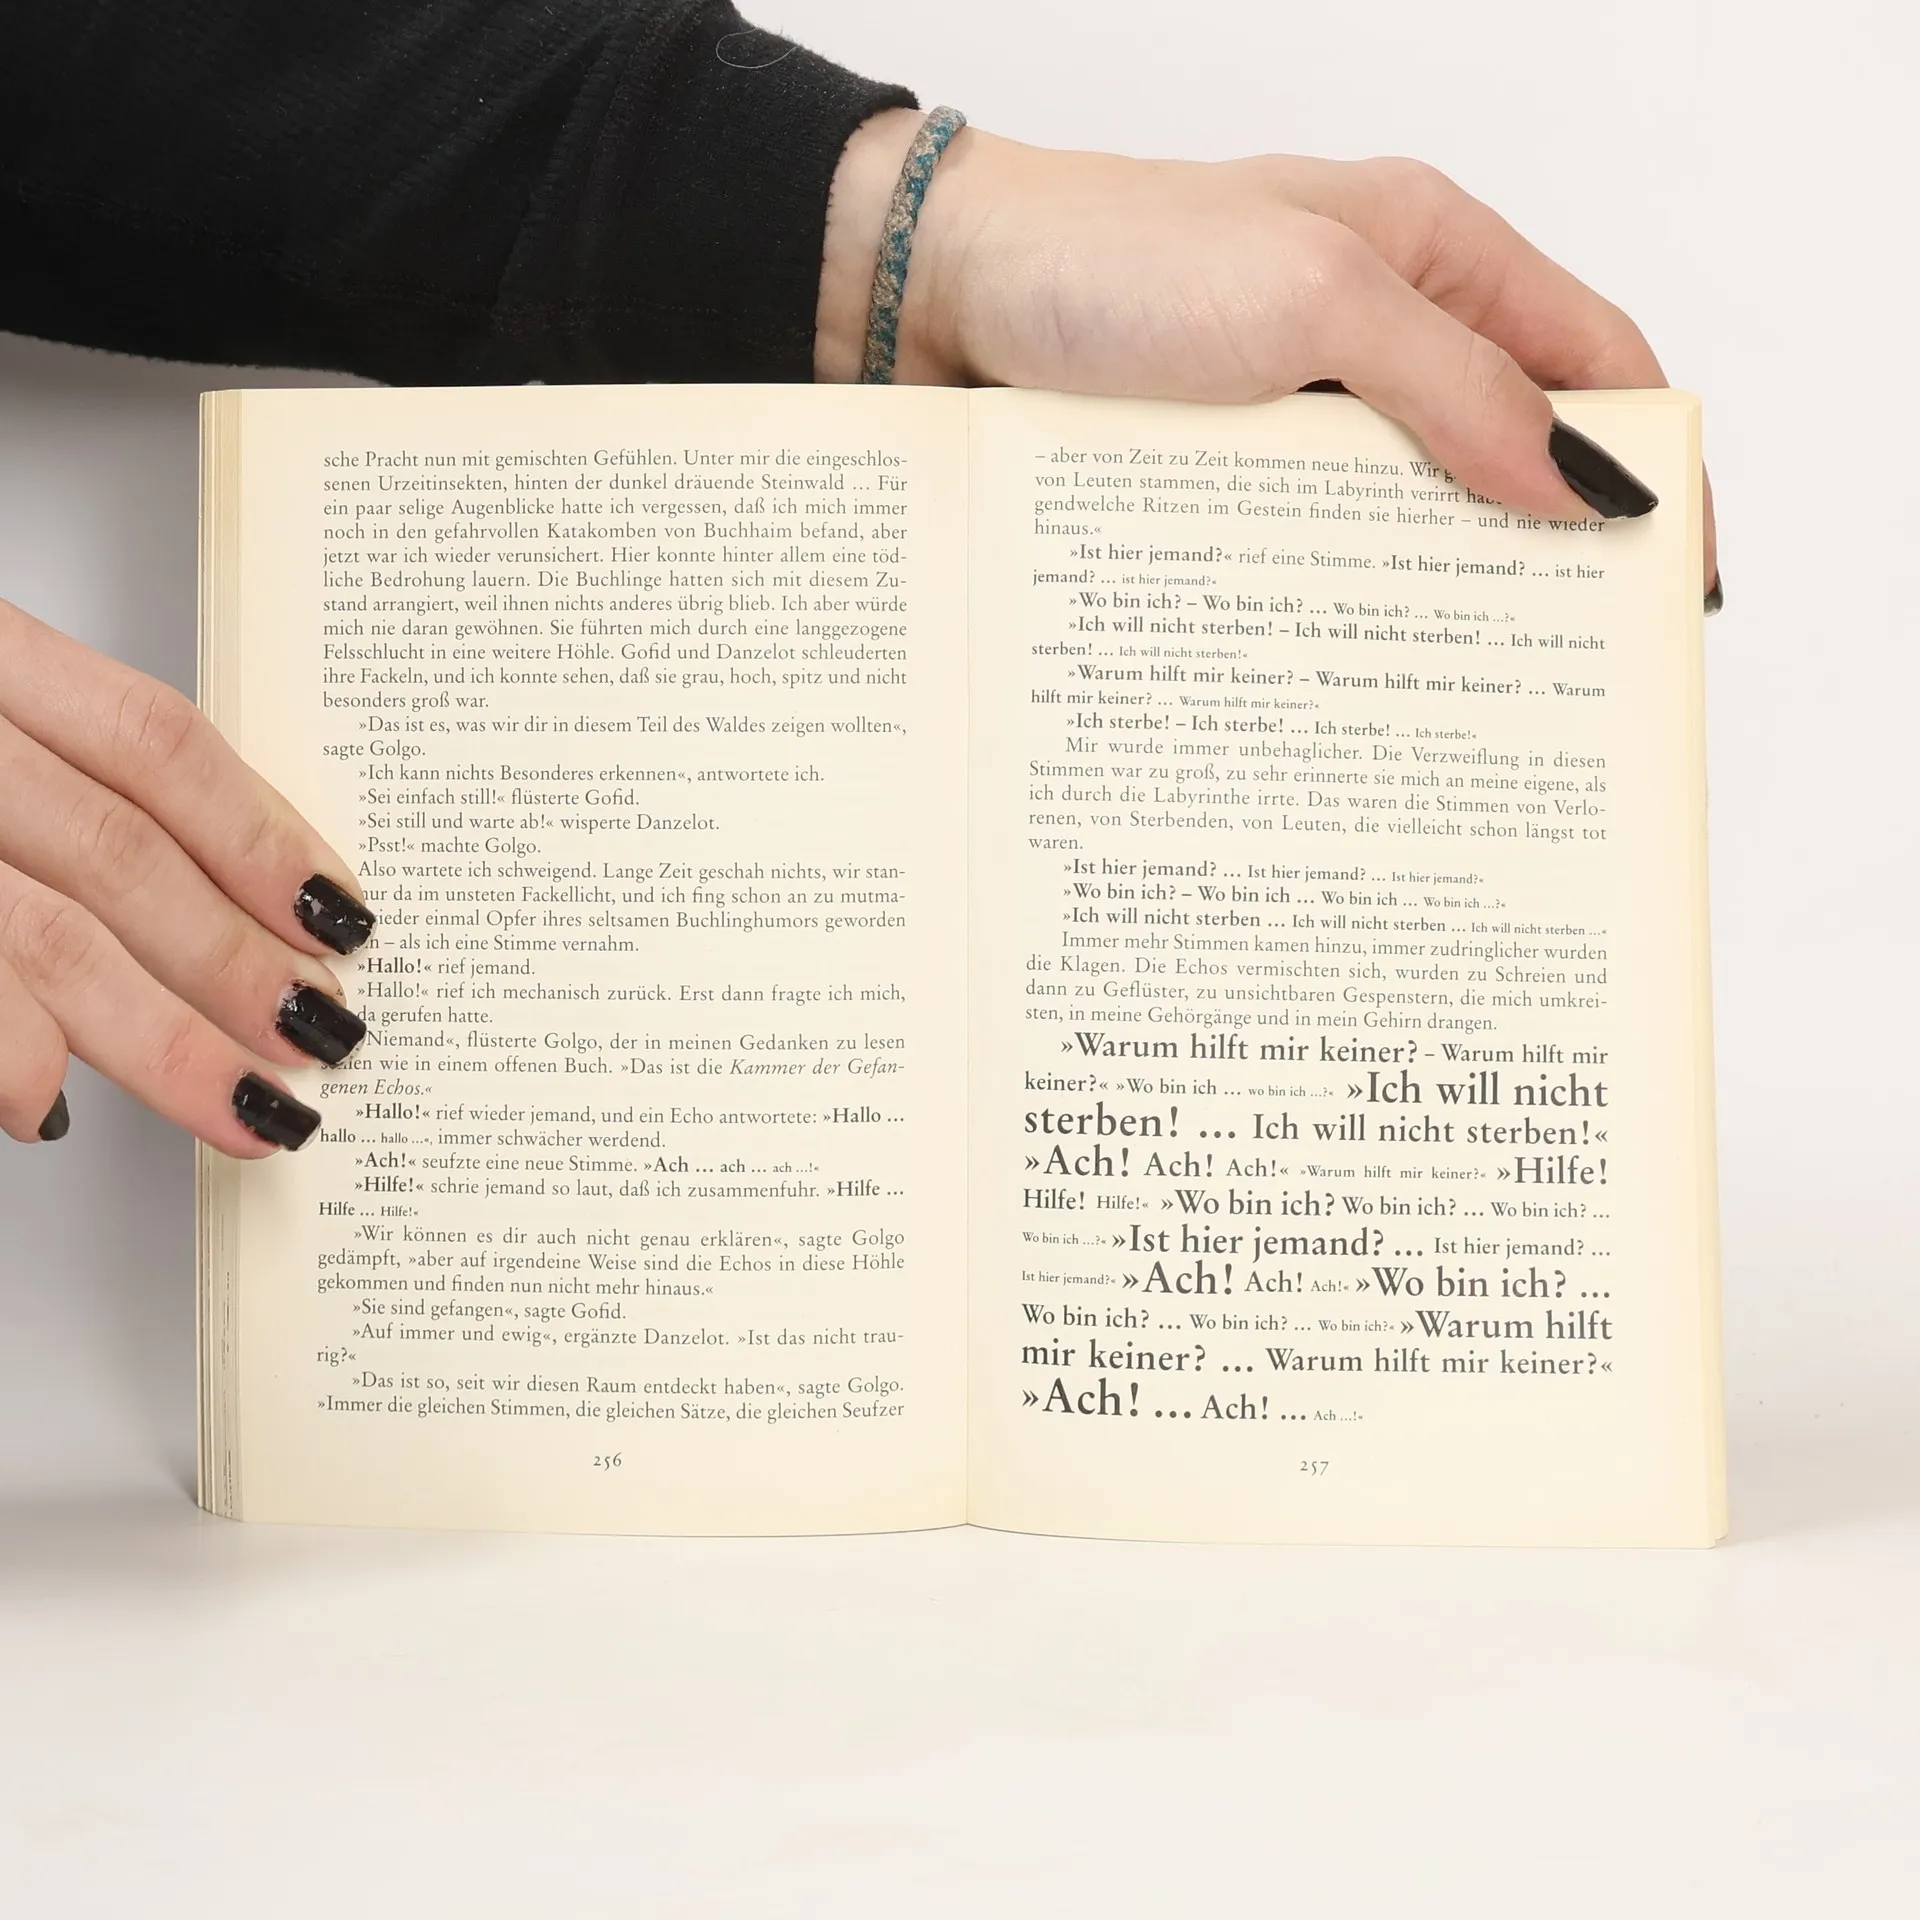 sche Pracht nun mit gemischten Gefühlen. Unter mir die eingeschlos-
senen Urzeitinsekten, hinten der dunkel dräuende Steinwald ... Für
ein paar selige Augenblicke hatte ich vergessen, daß ich mich immer
noch in den gefahrvollen Katakomben von Buchhaim befand, aber
jetzt war ich wieder verunsichert. Hier konnte hinter allem eine töd-
liche Bedrohung lauern. Die Buchlinge hatten sich mit diesem Zu-
stand arrangiert, weil ihnen nichts anderes übrig blieb. Ich aber würde
mich nie daran gewöhnen. Sie führten mich durch eine langgezogene
Felsschlucht in eine weitere Höhle. Gofid und Danzelot schleuderten
ihre Fackeln, und ich konnte sehen, daß sie grau, hoch, spitz und nicht
besonders groß war.
»Das ist es, was wir dir in diesem Teil des Waldes zeigen wollten«,
sagte Golgo.
»Ich kann nichts Besonderes erkennen«, antwortete ich.
»Sei einfach still!« flüsterte Gofid.
»Sei still und warte ab!« wisperte Danzelot.
»Psst!« machte Golgo.
Also wartete ich schweigend. Lange Zeit geschah nichts, wir stan-
nur da im unsteten Fackellicht, und ich fing schon an zu mutma-
wieder einmal Opfer ihres seltsamen Buchlinghumors geworden
– als ich eine Stimme vernahm.
»Hallo!« rief jemand.
»Hallo!« rief ich mechanisch zurück. Erst dann fragte ich mich,
da gerufen hatte.
Niemand«, flüsterte Golgo, der in meinen Gedanken zu lesen
wie in einem offenen Buch. »Das ist die Kammer der Gefan-
genen Echos.«
»Hallo!« rief wieder jemand, und ein Echo antwortete: »Hallo ...
hallo ... hallo ...«, immer schwächer werdend.
»Ach!« seufzte eine neue Stimme. »Ach ... ach ... ach ...!«
»Hilfe!« schrie jemand so laut, daß ich zusammenfuhr. »Hilfe ...
Hilfe ... Hilfe!«
»Wir können es dir auch nicht genau erklären«, sagte Golgo
gedämpft, »aber auf irgendeine Weise sind die Echos in diese Höhle
gekommen und finden nun nicht mehr hinaus.«
»Sie sind gefangen«, sagte Gofid.
»Auf immer und ewig«, ergänzte Danzelot. »Ist das nicht trau-
rig?«
»Das ist so, seit wir diesen Raum entdeckt haben«, sagte Golgo.
»Immer die gleichen Stimmen, die gleichen Sätze, die gleichen Seufzer
256
– aber von Zeit zu Zeit kommen neue hinzu. Wir
von Leuten stammen, die sich im Labyrinth verirrt
gendwelche Ritzen im Gestein finden sie hierher – und nie wieder
hinaus.«
»Ist hier jemand?« rief eine Stimme. »Ist hier jemand? ... ist hier
jemand? ... ist hier jemand?«
»Wo bin ich? – Wo bin ich? ... Wo bin ich? ... Wo bin ich ...?«
»Ich will nicht sterben! – Ich will nicht sterben! ... Ich will nicht
sterben! ... Ich will nicht sterben!«
»Warum hilft mir keiner? – Warum hilft mir keiner? ... Warum
hilft mir keiner? ... Warum hilft mir keiner?«
»Ich sterbe! – Ich sterbe! ... Ich sterbe! ... Ich sterbe!«
Mir wurde immer unbehaglicher. Die Verzweiflung in diesen
Stimmen war zu groß, zu sehr erinnerte sie mich an meine eigene, als
ich durch die Labyrinthe irrte. Das waren die Stimmen von Verlo-
renen, von Sterbenden, von Leuten, die vielleicht schon längst tot
waren.
»Ist hier jemand? ... Ist hier jemand? ... Ist hier jemand?«
»Wo bin ich? – Wo bin ich ... Wo bin ich ... Wo bin ich ...?«
»Ich will nicht sterben ... Ich will nicht sterben ... Ich will nicht sterben ...«
Immer mehr Stimmen kamen hinzu, immer zudringlicher wurden
die Klagen. Die Echos vermischten sich, wurden zu Schreien und
dann zu Geflüster, zu unsichtbaren Gespenstern, die mich umkrei-
sten, in meine Gehörgänge und in mein Gehirn drangen.
»Warum hilft mir keiner? – Warum hilft mir
keiner?« »Wo bin ich ... wo bin ich ...?« »Ich will nicht
sterben! ... Ich will nicht sterben!«
»Ach! Ach! Ach!« »Warum hilft mir keiner?« »Hilfe!
Hilfe! Hilfe!« »Wo bin ich? Wo bin ich? ... Wo bin ich? ...
Wo bin ich ...?« »Ist hier jemand? ... Ist hier jemand? ...
Ist hier jemand?« »Ach! Ach! Ach!« »Wo bin ich? ...
Wo bin ich? ... Wo bin ich? ... Wo bin ich?« »Warum hilft
mir keiner? ... Warum hilft mir keiner?«
»Ach! ... Ach! ... Ach ...!«
257